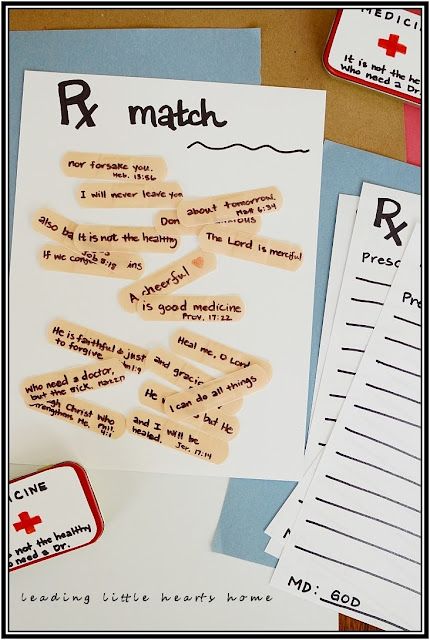 MEDICINE
It is not the he
who need a Dr.
Rx match
nor forsake you.
Heb. 13:5b
I will never leave you
about tomorrow.
Matt 6:34
Don
anxious
also ba
It is not the healthy
The Lord is merciful
If we confe
ins
8:18
A cheerful
is good medicine
Prov. 17:22
He is faithful & just
to forgive
1:9
Heal me, O Lord
and graci
who need a doctor,
but the sick.
I can do all things
He
but He
gh Christ who
strengthens me. Phil.
4:1
and I will be
healed. Jer. 17:14
Rx
Presc
Rx
Pre
MD: GOD
ICINE
s not the healthy
o need a Dr.
leading little hearts home